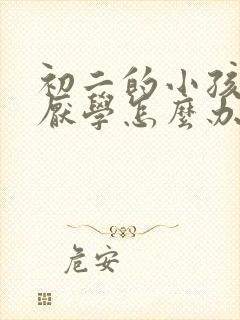 初二的小孩
厭學怎麼办
危安